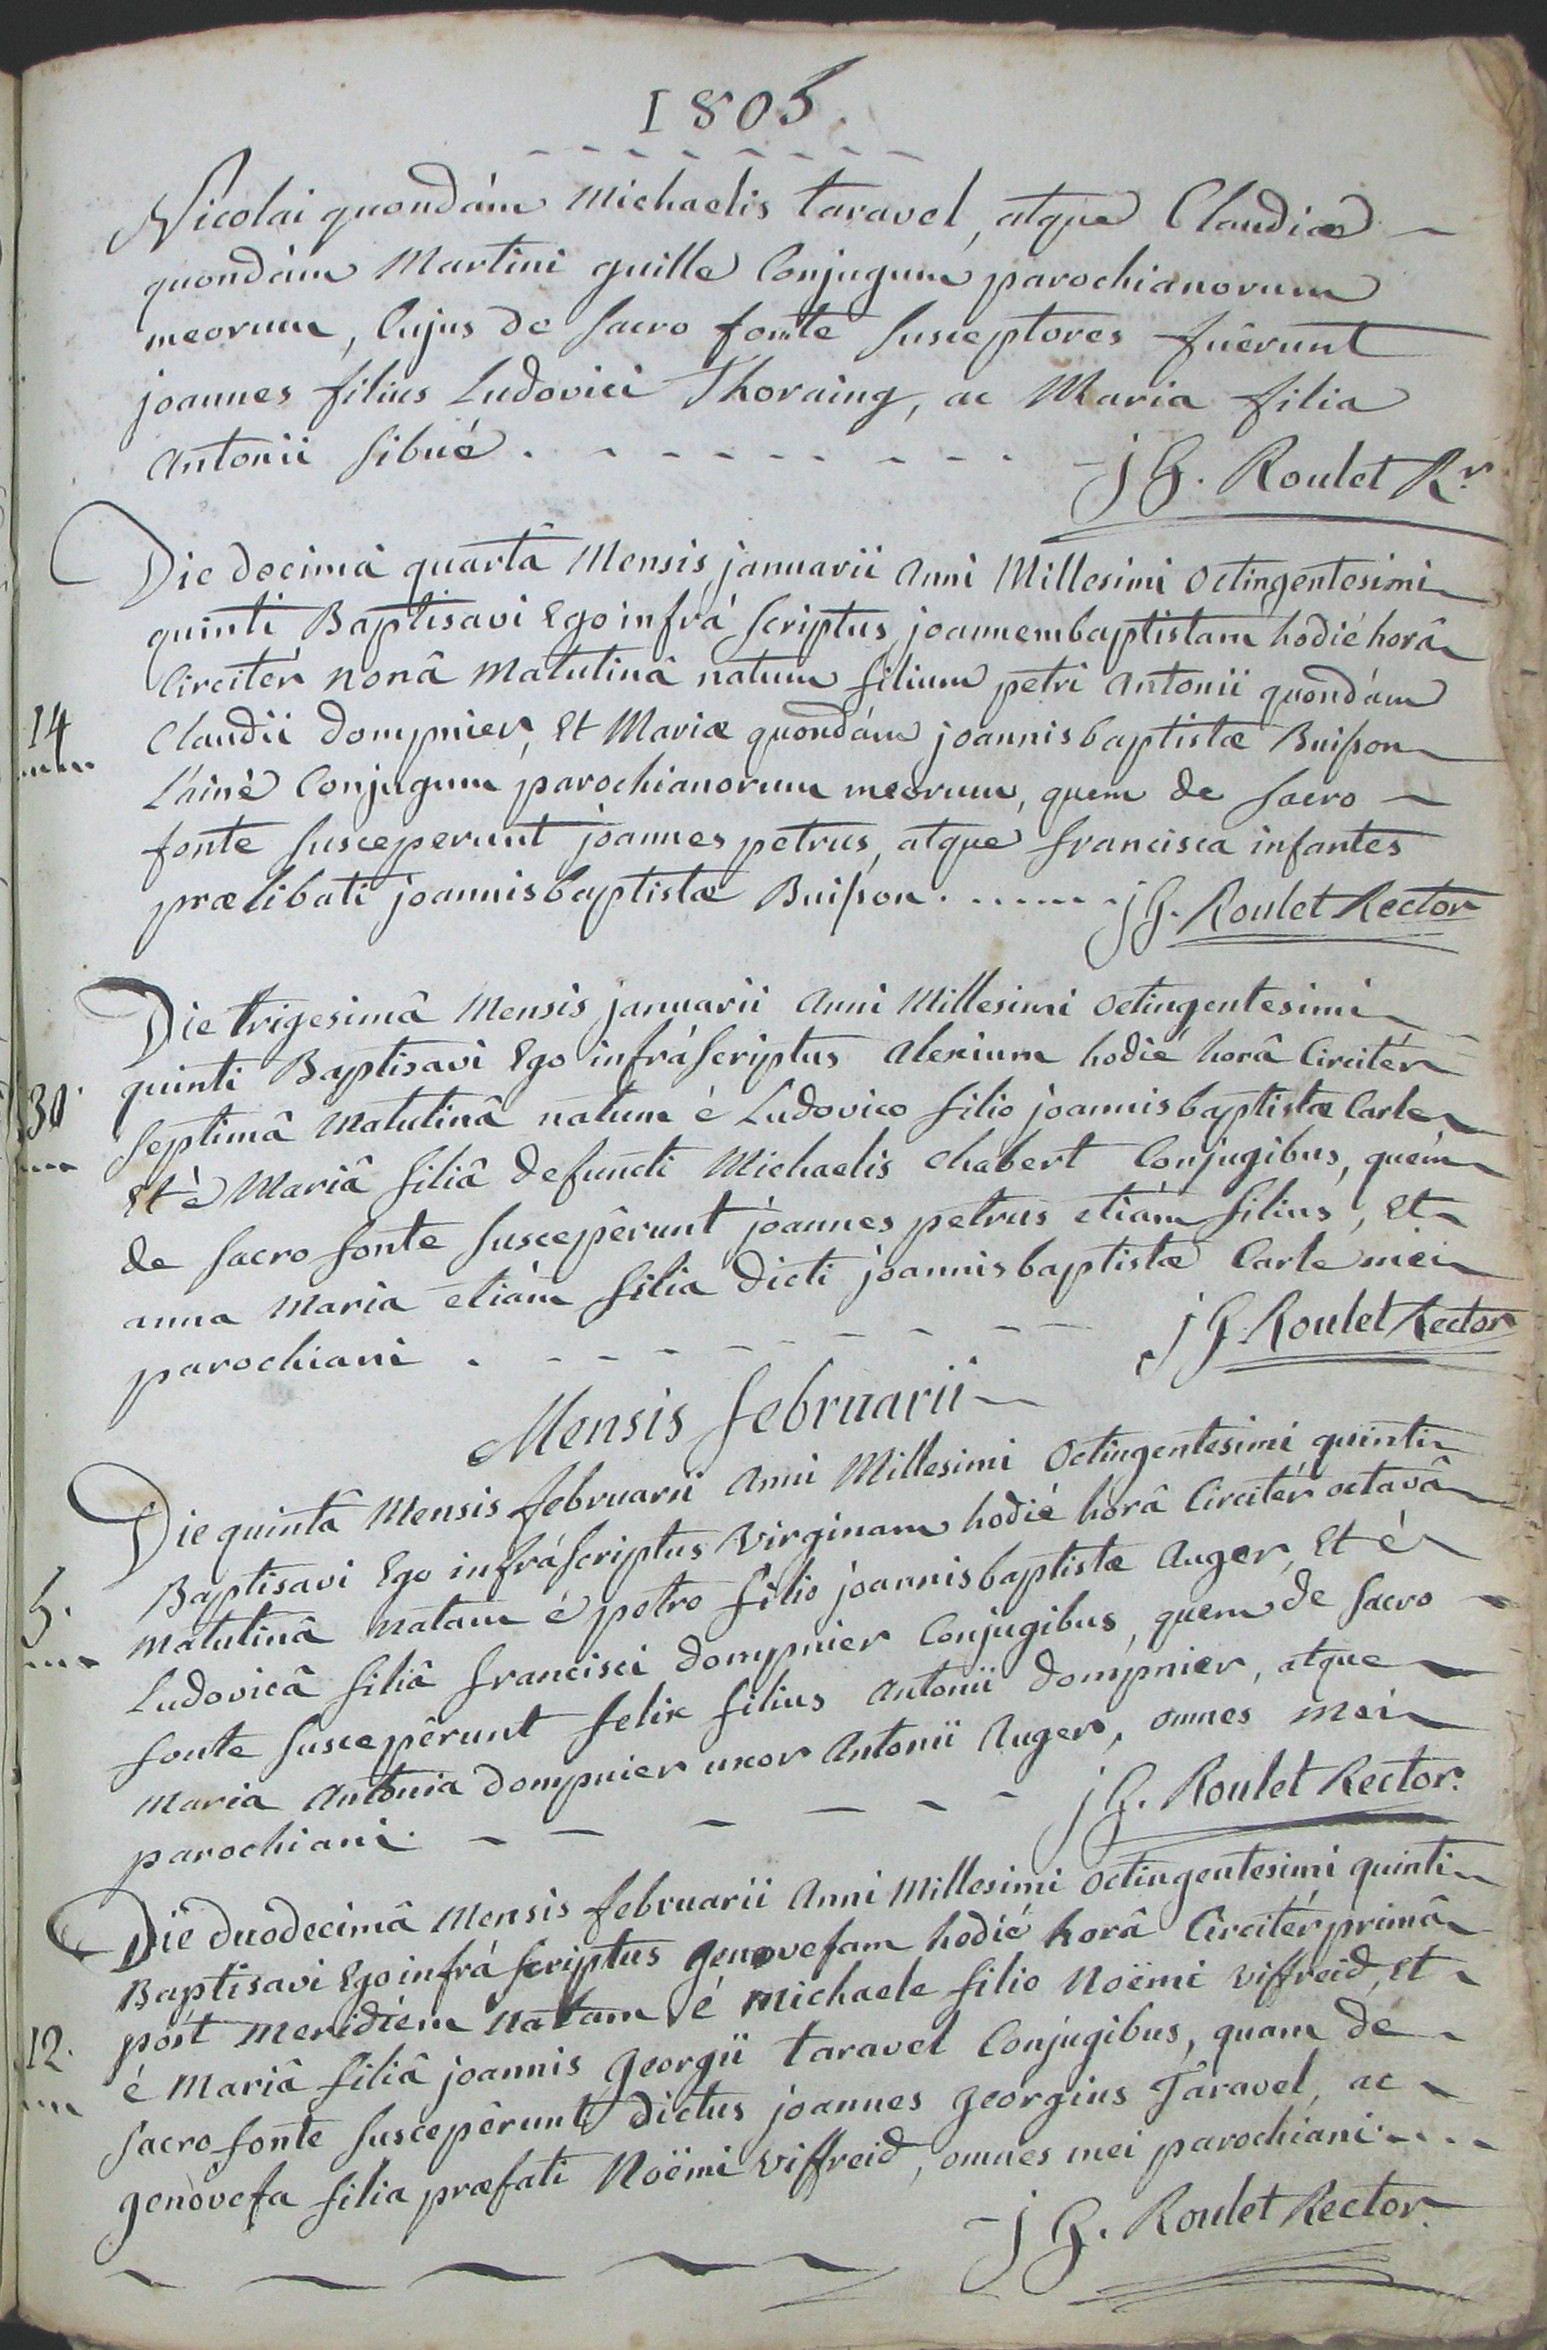 1805.
Nicolai quondàm Michaelis taravel, atque Claudiæ
quondàm Martini guille Conjugum parochianorum
meorum, Cujus de sacro fonte susceptores fuêrunt
joannes filius Ludovici Thoraing, ac Maria filia
Antonii sibué. - - - - - - - - - jG. Roulet Rr.
Die decimâ quartâ Mensis januarii Anni Millesimi octingentesimi
quinti Baptisavi Ego infrá scriptus joannembaptistam hodié horâ
Circitér nonâ matutinâ natum filium petri Antonii quondàm
14
Claudii dompnier, Et Mariæ quondám joannisbaptistæ Buisson
L'ainé Conjugum parochianorum meorum, quem de sacro
fonte susceperunt joannes petrus, atque francisca infantes
prælibati joannisbaptistæ Buisson. ...... jG. Roulet Rector
Die trigesimâ Mensis januarii Anni Millesimi octingentesimi
quinti Baptisavi Ego infráscriptus alexium hodié horâ Circitér
30.
septimâ matutinâ natum é Ludovico filio joannisbaptistæ Carle
Et è Mariâ filiâ defuncti Michaelis chabert Conjugibus, quém
de sacro fonte suscepêrunt joannes petrus etiám filius, Et
anna Maria etiám filia dicti joannisbaptistæ Carle mei
parochiani . - - - - - - - - jG. Roulet Rector
Mensis februarii
Die quintâ Mensis februarii Anni Millesimi Octingentesimi quinti
Baptisavi Ego infráscriptus Virginam hodié horâ Circitér octavâ
5.
matutinâ natam é petro filio joannisbaptistæ Auger, Et é
Ludovicâ filiâ francisci dompnier Conjugibus, quem de sacro
fonte suscepêrunt felix filius Antonii dompnier, atque
Maria Antonia dompnier uxor Antonii Auger, omnes mei
parochiani. - - - - - - jG. Roulet Rector.
Die duodecimâ Mensis februarii Anni Millesimi octingentesimi quinti
Baptisavi Ego infrá scriptus genovefam hodié horâ Circitér primâ
post meridiém natam é Michaele filio Noëmi Viffreid, Et
12.
é Mariâ filiâ joannis georgii taravel Conjugibus, quam de
sacro fonte suscepêrunt dictus joannes georgius Taravel, ac
genovefa filia præfati Noëmi Viffreid, omnes mei parochiani....
jG. Roulet Rector.